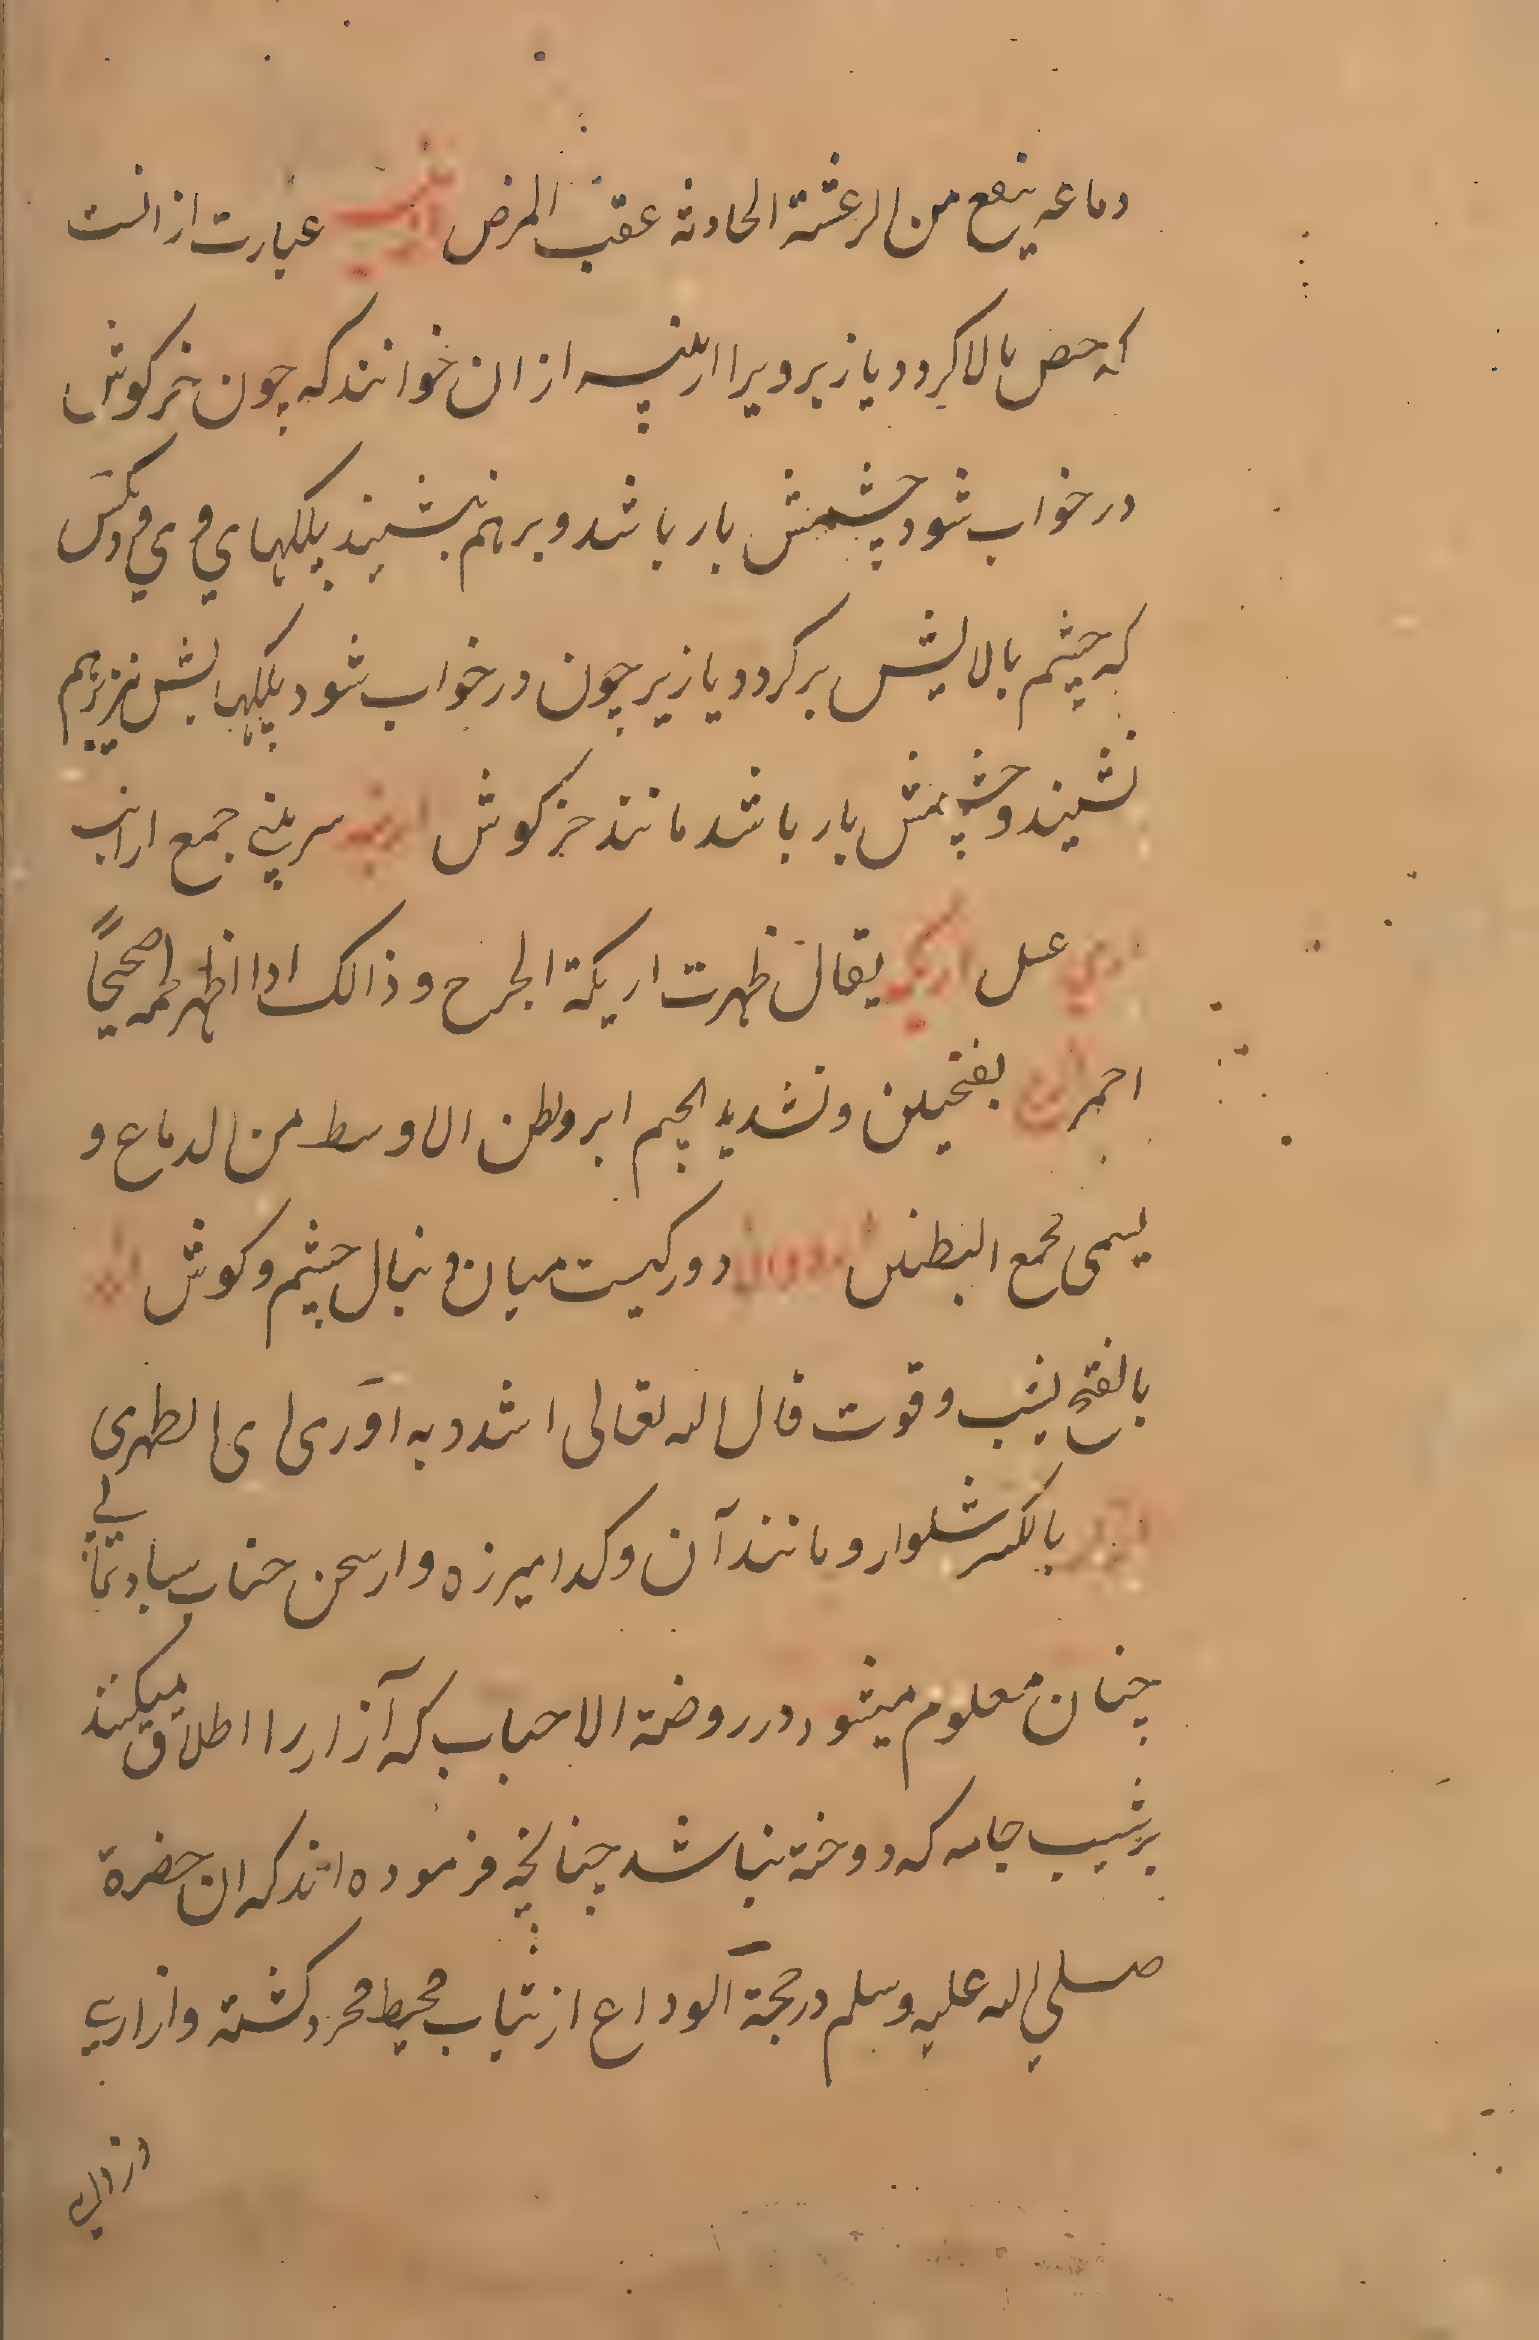 دماغه ینفع من الرعشة الحادثة عقب المرض ارنبیه عبارت از انست
که جفن بالا کردد یا زیر و یرا ارنبیه از ان خوانند که چون خرکوش
در خواب شود چشمش باز باشد و برهم نشیند پلکهای وی و دکسی
که چشم بالایش برکردد یا زیر چون در خواب شود پلکهایش نیز برهم
نشیند و چشمش باز باشد مانند خرکوش ارنبه سر بینی جمع ارانب
اری عسل اریکه یقال ظهرت اریکة الجرح و ذالک اذا اظهر لحمه صحیحاً
احمر بفتحین و تشدید الجیم ابر وبطن الاوسط من الدماغ و
یسمی مجمع البطنین دو رکیست میان دنبال چشم و کوش ازر
بالفتح پشت و قوت قال الله تعالی اشدد به ازری ای ظهری
ازار بالکسر شلوار و مانند آن وکذا میرزه و از سخن جناب سیادت مآبی
چنان معلوم میشود در روضة الاحباب که آزار را اطلاق میکنند
بر شیب جامه که دوخته نباشد چنانچه فرموده اند که ان حضرة
صلی الله علیه وسلم در حجة الوداع از ثیاب محیط مجرد کشته و ازاری